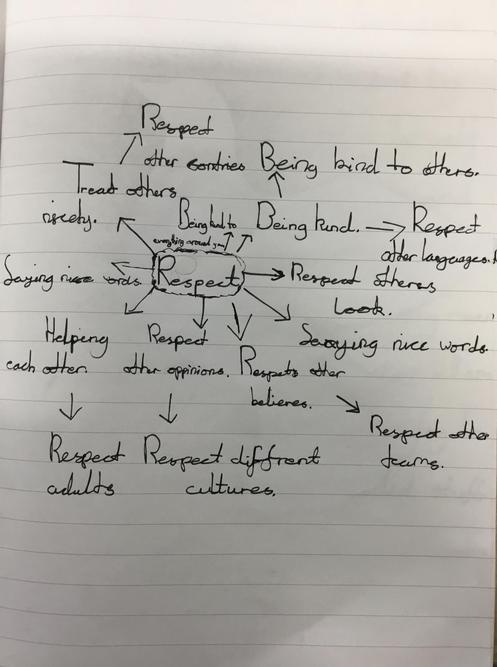 Respect
other contries
Being kind to others.
Treat others
nicely.
Being kind to
everything around you
Being kind.
Respect
other languages.
Saying nice words.
Respect
Respect others
Look.
Helping
each other.
Respect
other oppinions.
Respets other
believes.
Saying nice words.
Respect other
teams.
Respect
adults
Respect diffrent
cultures.